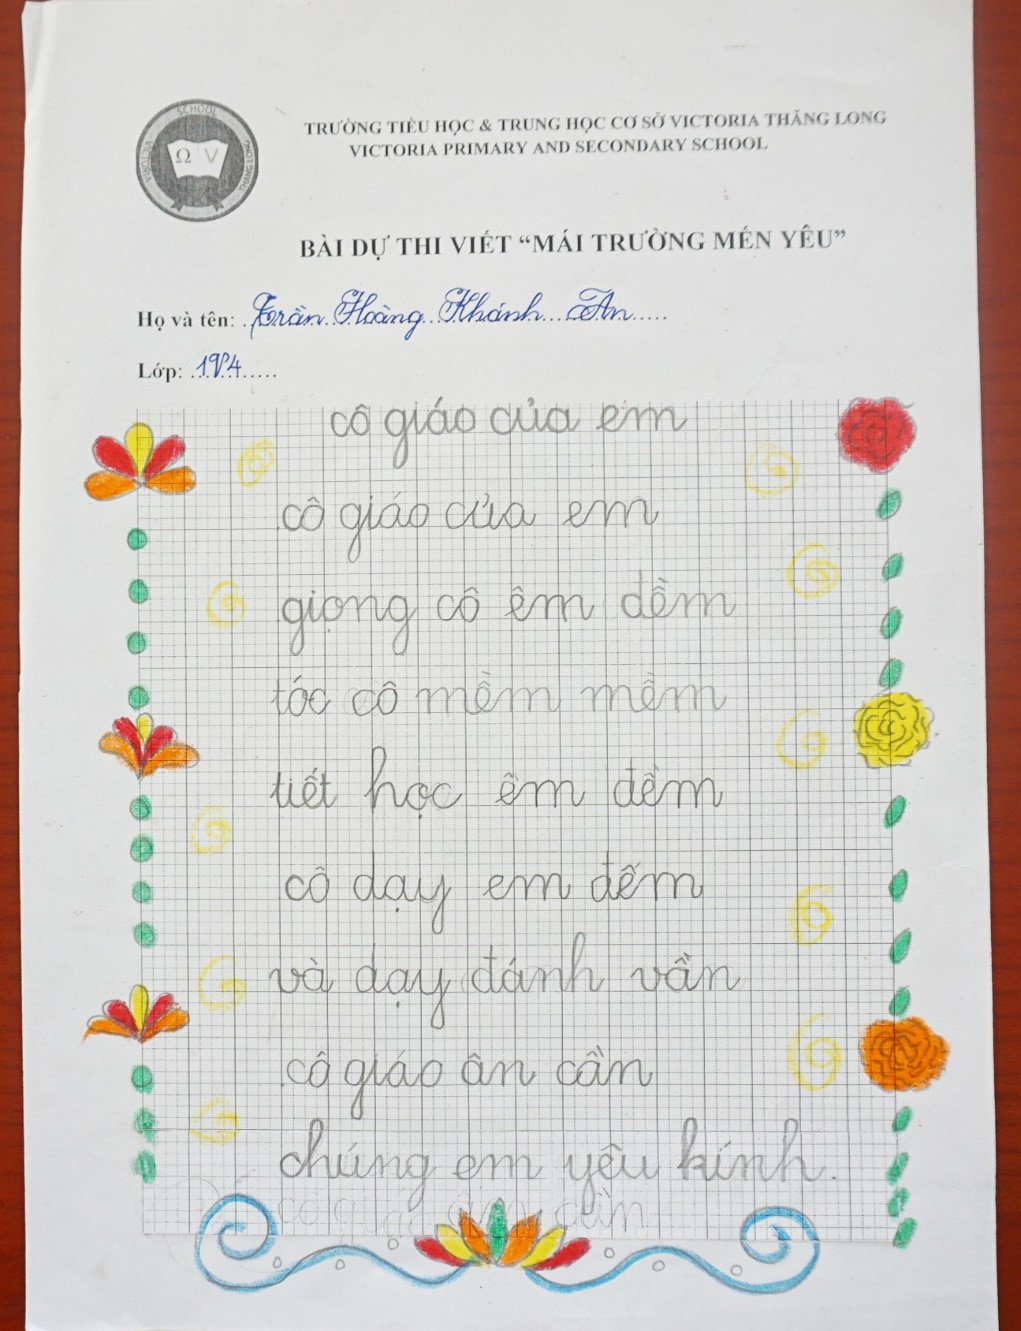 SCHOOL
VICTORIA
THANG LONG
Ω V
TRƯỜNG TIỂU HỌC & TRUNG HỌC CƠ SỞ VICTORIA THĂNG LONG
VICTORIA PRIMARY AND SECONDARY SCHOOL
BÀI DỰ THI VIẾT “MÁI TRƯỜNG MẾN YÊU”
Họ và tên: Trần Hoàng Khánh An
Lớp: 1V4
cô giáo của em
cô giáo của em
giọng cô êm đềm
tóc cô mềm mềm
tiết học êm đềm
cô dạy em đếm
và dạy đánh vần
cô giáo ân cần
chúng em yêu kính.
cô giáo ân cần